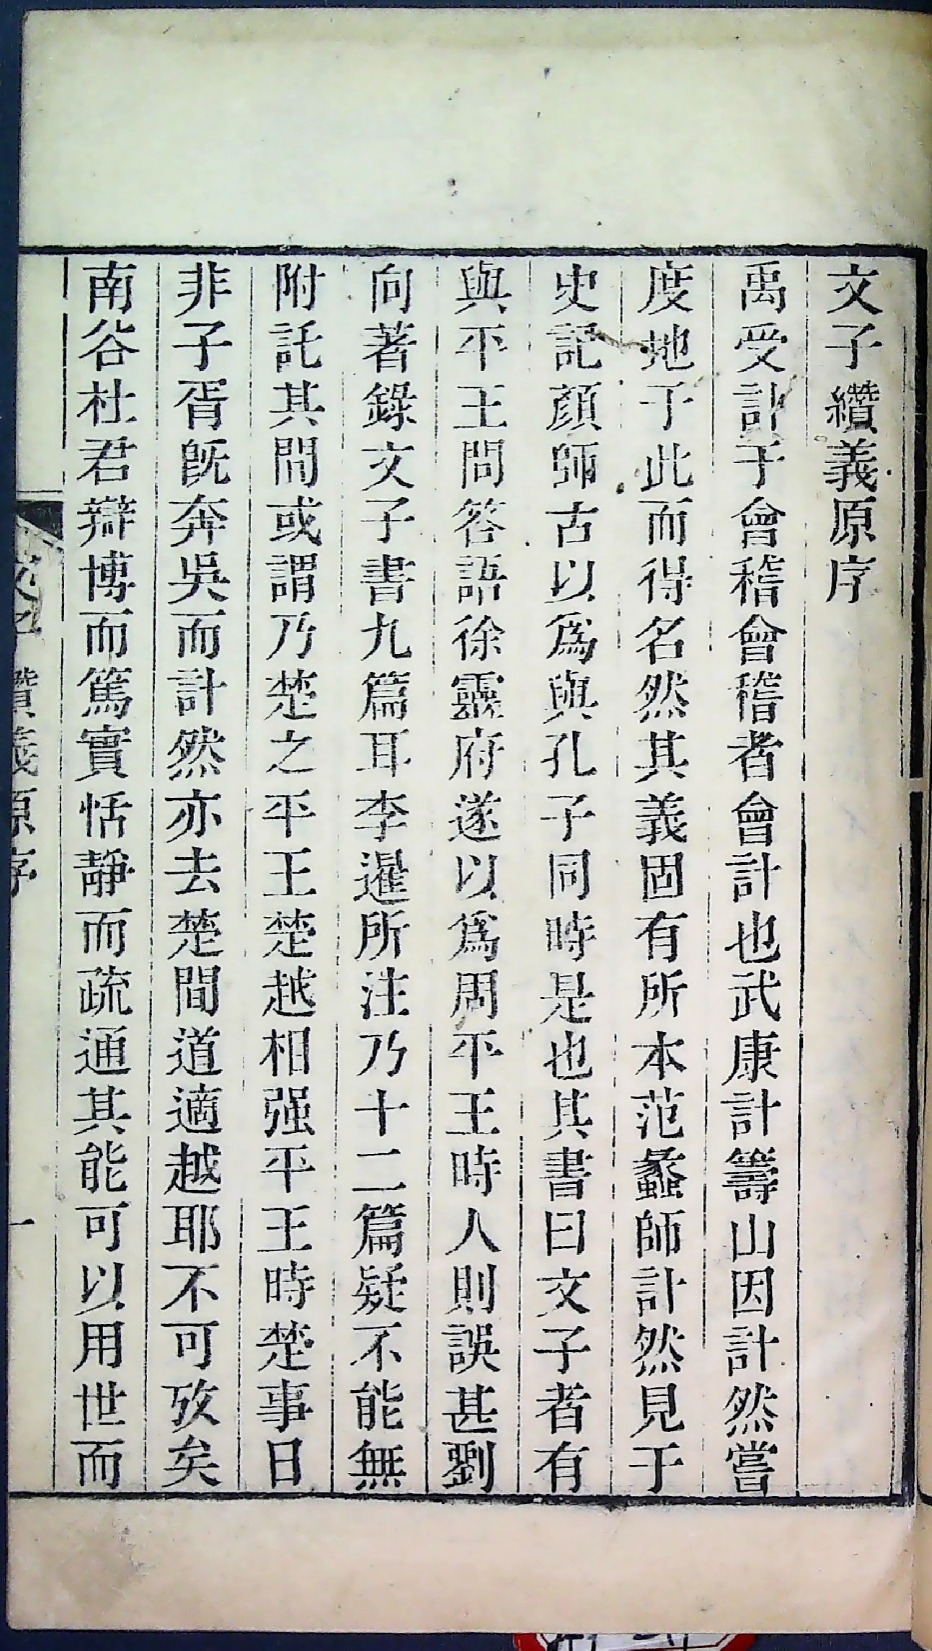 文子纘義原序
禹受計于會稽會稽者會計也武康計籌山因計然嘗
度地于此而得名然其義固有所本范蠡師計然見于
史記顏師古以爲與孔子同時是也其書曰文子者有
與平王問答語徐靈府遂以爲周平王時人則誤甚劉
向著錄文子書九篇耳李暹所注乃十二篇疑不能無
附託其間或謂乃楚之平王楚越相强平王時楚事日
非子胥旣奔吳而計然亦去楚間道適越耶不可攷矣
南谷杜君辯博而篤實恬靜而疏通其能可以用世而
文子纘義原序
一